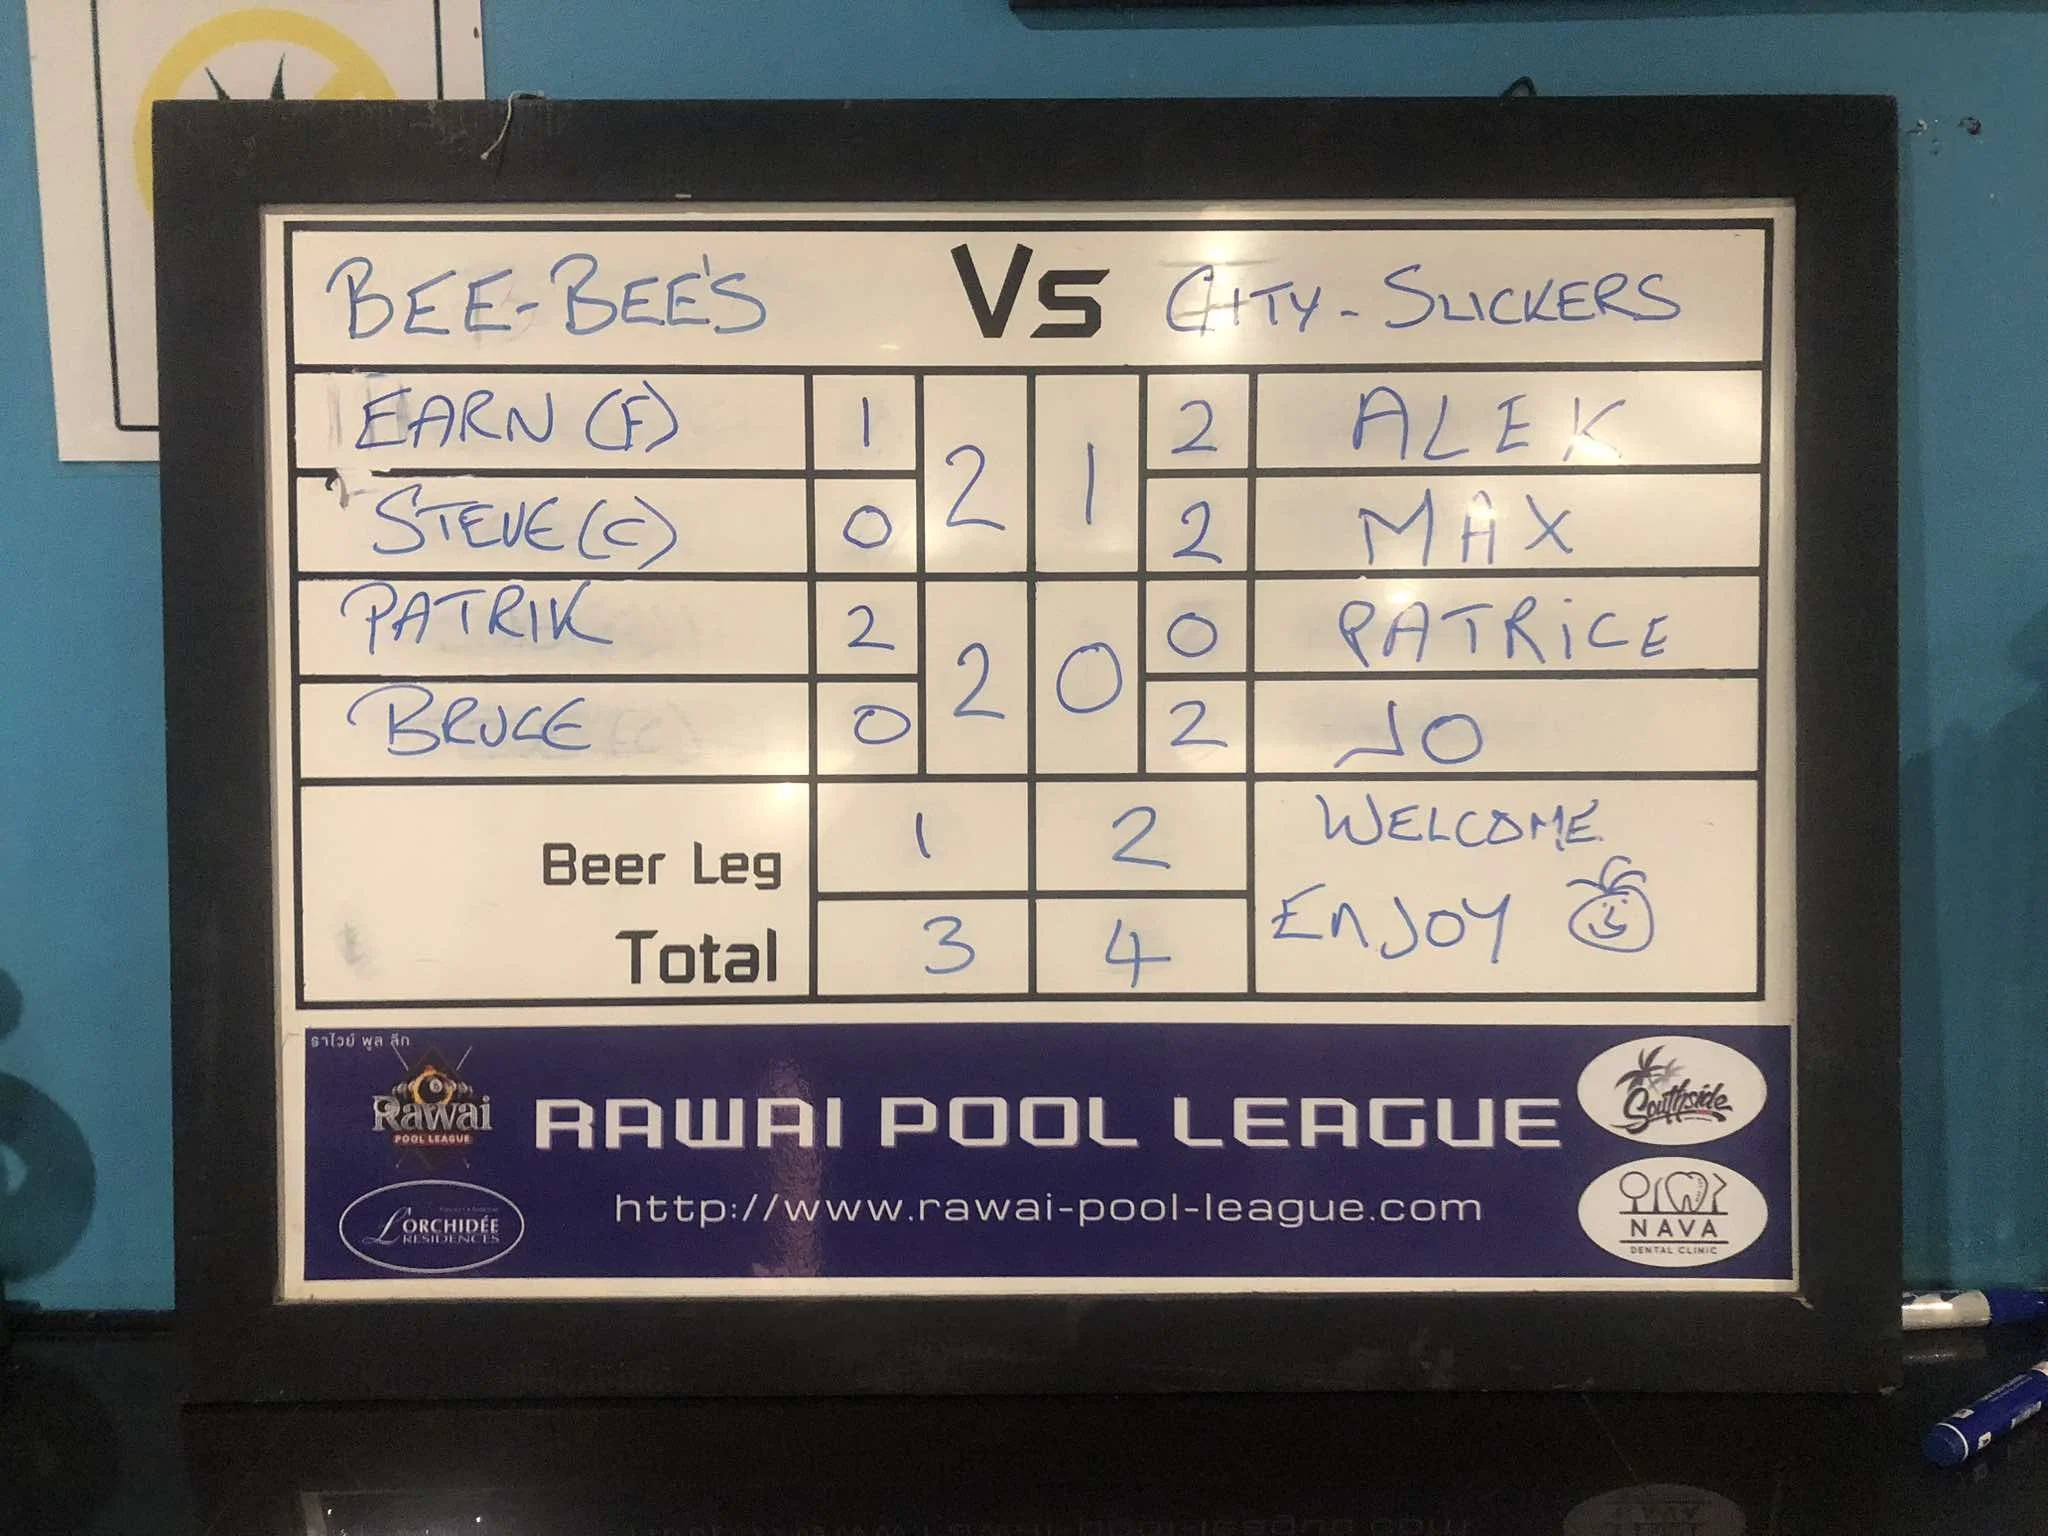 BEE-BEE'S Vs CITY-SLICKERS
EARN (F) 1 2 1 2 ALEK
STEVE (C) 0 2 MAX
PATRIK 2 2 0 0 PATRICE
BRUCE 0 2 JO
Beer Leg 1 2 WELCOME
Total 3 4 ENJOY
ราไวย์ พูล ลีก
Rawai
POOL LEAGUE
RAWAI POOL LEAGUE
Southside
http://www.rawai-pool-league.com
L'ORCHIDÉE
RESIDENCES
NAVA
DENTAL CLINIC